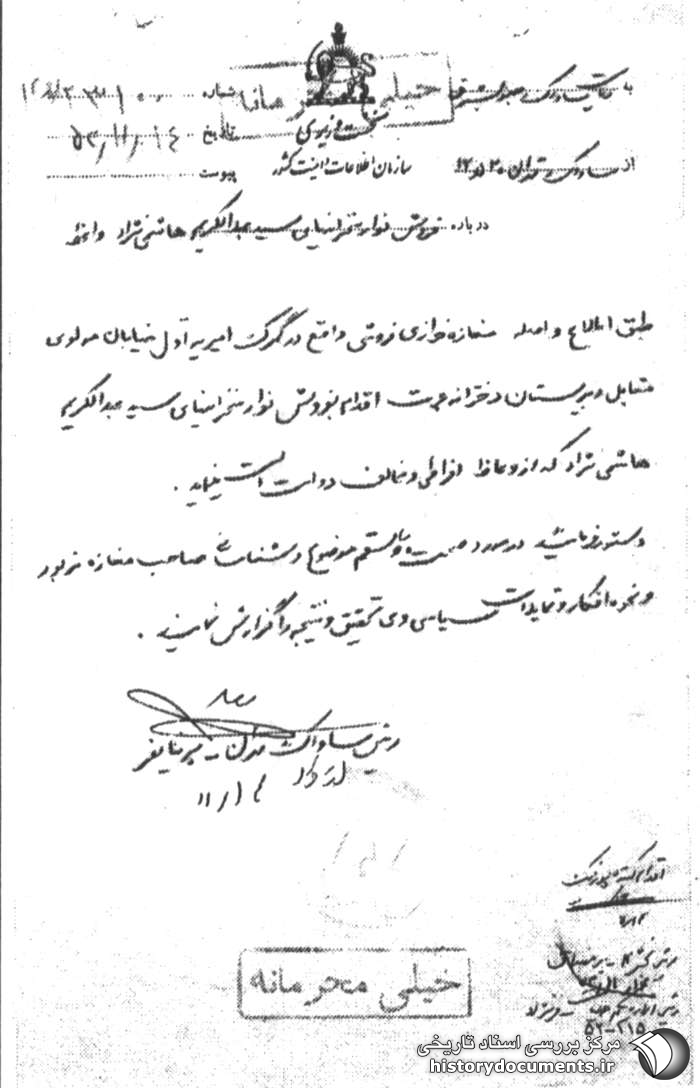 خیلی محرمانه
به
شماره
نخست وزیری
تاریخ ۵۳/۱۱/۱۴
از ساواک تهران ۲۰ هـ ۱۲
سازمان اطلاعات و امنیت کشور
پیوست
درباره فروش نوار سخنرانیهای سید عبدالکریم هاشمی نژاد واعظ
طبق اطلاع واصله مغازه خرازی فروشی واقع در گمرک امیریه اول خیابان مولوی
مقابل دبیرستان دخترانه عزت اقدام بفروش نوار سخنرانیهای سید عبدالکریم
هاشمی نژاد که از وعاظ افراطی و مخالف دولت است مینماید .
دستور فرمائید در مورد صحت و سقم موضوع و شناسائی صاحب مغازه مزبور
و نحوه افکار و تمایلات سیاسی وی تحقیق و نتیجه را گزارش نمایند .
رئیس ساواک تهران -
۱۱/۱۴
اقدام کننده
خیلی محرمانه
رئیس
۵۲-۲۱۵
مرکز بررسی اسناد تاریخی
historydocuments.ir